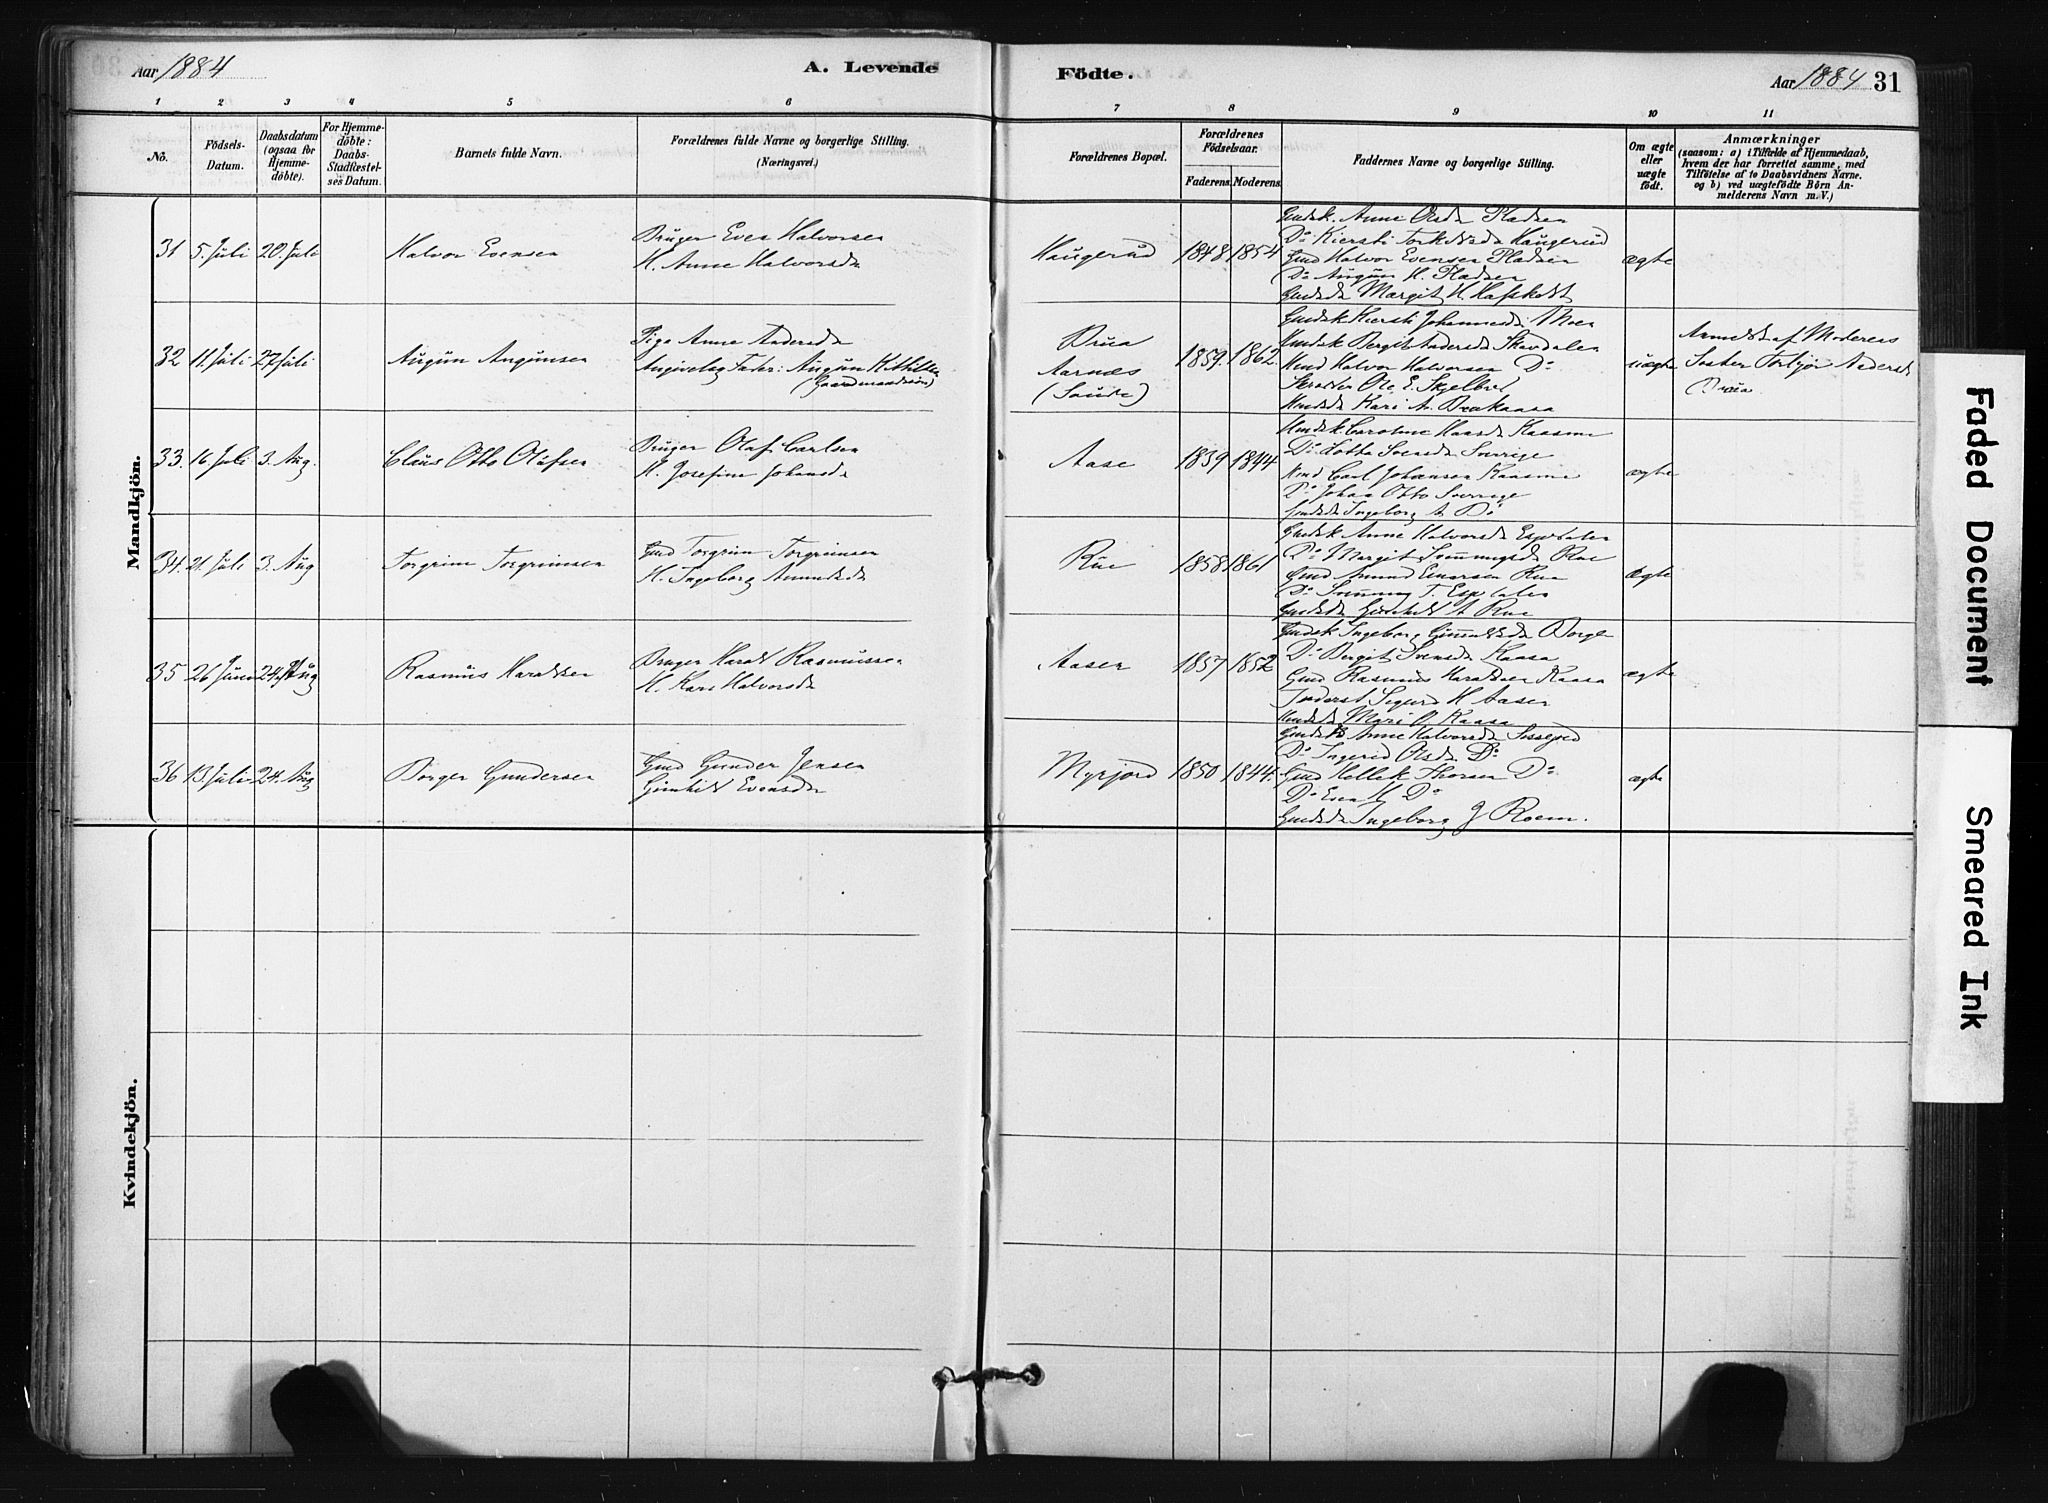 Aar 1884
A. Levende
Födte.
Aar 1884 31
1 2 3 4 5 6 7 8 9 10 11
No.
Födsels-
Datum.
Daabsdatum
(ogsaa for
Hjemme-
döbte).
For Hjemme-
döbte:
Daabs-
Stadfæstel-
ses Datum.
Barnets fulde Navn.
Forældrenes fulde Navne og borgerlige Stilling.
(Næringsvei.)
Forældrenes Bopæl.
Forældrenes
Födselsaar.
Faderens. Moderens.
Faddernes Navne og borgerlige Stilling.
Om ægte
eller
uægte
födt.
Anmærkninger
(saasom: a) i Tilfælde af Hjemmedaab,
hvem der har forrettet samme, med
Tilföielse af to Daabsvidners Navne.
og b) ved uægtefödte Börn An-
melderens Navn m.V.)
Mandkjön.
31 5. Juli 20. Juli
Halvor Evensen
Bruger Even Halvorsen
H. Anne Halvorsd
Haugerud
1848 1854
Gmdsk. Anne Olsd Pladsen
Do Kiersti Torkildsd Haugerud
Gmd Halvor Evensen Pladsen
Do Augun H. Pladsen
Gmdsd Margit H.
ægte
32 11. Juli 27 Juli
Augun Augunsen
Pige Anne Andersd
Angiveleg Fader: Augun K.
(Gaardmandssøn)
Brua
Aarnæs
(Saude)
1859. 1862.
Gmdsk Kiersti Johannesd Moen
Hmdsk Bergit Andersd Skavdalen
Hmd Halvor Halvorsen Do
Ole E. Skjelbred
Hmdsd Kari A.
uægte
Anmeldt af Moderens
Søster Torbjør Andersd
Brua
33. 16 Juli 3. Aug.
Claus Otto Olafsen
Bruger Olaf Carlsen
H. Josefine Johansd
Aase
1839 1844
Hmdsk. Caroline Kaasene
Do Lotta Svensd Sverige
Hmd Carl Johansen Kaasene
Do Johan Otto Sverige
Ingeborg A Do
ægte
34. 21. Juli 3. Aug
Torgrim Torgrimsen
Gmd Torgrim Torgrimsen
H. Ingeborg Amundsd
Rue
1858 1861
Gmdsk Anne Halvorsd Espedalen
Do Margit Rue
Gmd Amund Einarsen Rue
Do T. Espedalen
Gmdsd Gunhild A Rue
Ægte
35 26 Juni 24. Aug
Rasmus Haraldsen
Bruger Harald Rasmussen
H. Kari Halvorsd
Aasen
1857 1852
Gmdsk Ingeborg Borge
Do Bergit Svensd Kaasa
Gmd Rasmus Haraldsen Kaasa
Inderst Sigurd H Aasen
Hmdsd Mari O. Kaasa
ægte
36 13. Juli 24. Aug
Borger Gundersen
Gmd Gunder Jensen
Gunhild Evensd
Myrjord
1850 1844.
Gmdsk Anne Halvorsd
Do Ingerid Olsd Do
Gmd Kellek Thorsen Do
Do Even H Do
Gmdsd Ingeborg J Roem.
ægte
Kvindekjön.
Faded Document
Smeared Ink